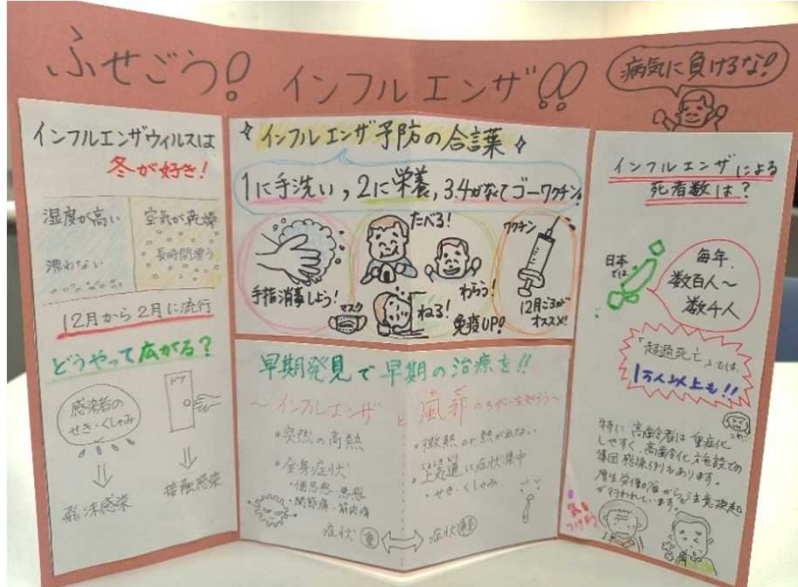 ふせごう!
インフルエンザ!!
病気に負けるな!
インフルエンザウィルスは
冬が好き!
湿度が高い
漂わない
空気が乾燥
長時間漂う
12月から2月に流行
どうやって広がる?
感染者の
せき・くしゃみ
ドア
飛沫感染
接触感染
インフルエンザ予防の合言葉
1に手洗い,2に栄養,3.4がなくてゴーワクチン!
手指消毒しよう!
マスク
たべる!
ねる!
わらう!
免疫UP!
ワクチン
12月ごろが
オススメ!
早期発見で早期の治療を!!
〜インフルエンザ
と
風邪のちがいを知ろう〜
・突然の高熱
・全身症状
・倦怠感・悪寒
・関節痛・筋肉痛
症状 重
・微熱 or 熱が出ない
・上気道に症状集中
・せき・くしゃみ
症状 軽
インフルエンザによる
死者数は?
日本
では
毎年,
数百人〜
数千人
「超過死亡」では,
1万人以上も!!
特に高齢者は重症化
しやすく,高齢化施設での
集団感染例もあります。
厚生労働省からも注意喚起
が行われています。
気を
つけよう